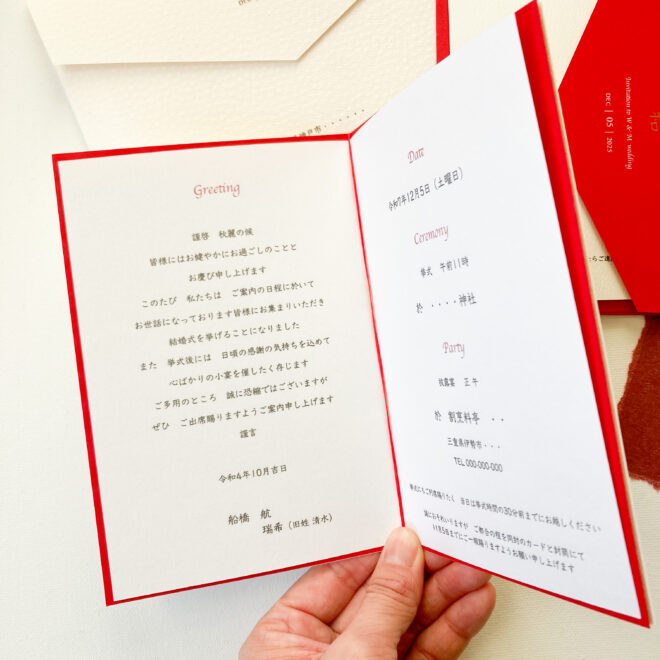 神戸市・・・・・・
Greeting
謹啓　秋麗の候
皆様にはお健やかにお過ごしのことと
お慶び申し上げます
このたび　私たちは　ご案内の日程に於いて
お世話になっております皆様にお集まりいただき
結婚式を挙げることになりました
また　挙式後には　日頃の感謝の気持ちを込めて
心ばかりの小宴を催したく存じます
ご多用のところ　誠に恐縮ではございますが
ぜひ　ご出席賜りますようご案内申し上げます
謹言
令和4年10月吉日
船橋　航
瑞希（旧姓 清水）
Date
令和7年12月5日（土曜日）
Ceremony
挙式　午前11時
於　・・・・神社
Party
披露宴　正午
於　割烹料亭　・・
三重県伊勢市・・・
TEL 000-000-000
挙式にもご列席賜りたく　当日は挙式時間の30分前までにお越しください
誠におそれいりますが　ご都合の程を同封のカードと封筒にて
11月5日までにご一報賜りますようお願い申し上げます
Invitation to W & M wedding
DEC | 05 | 2025